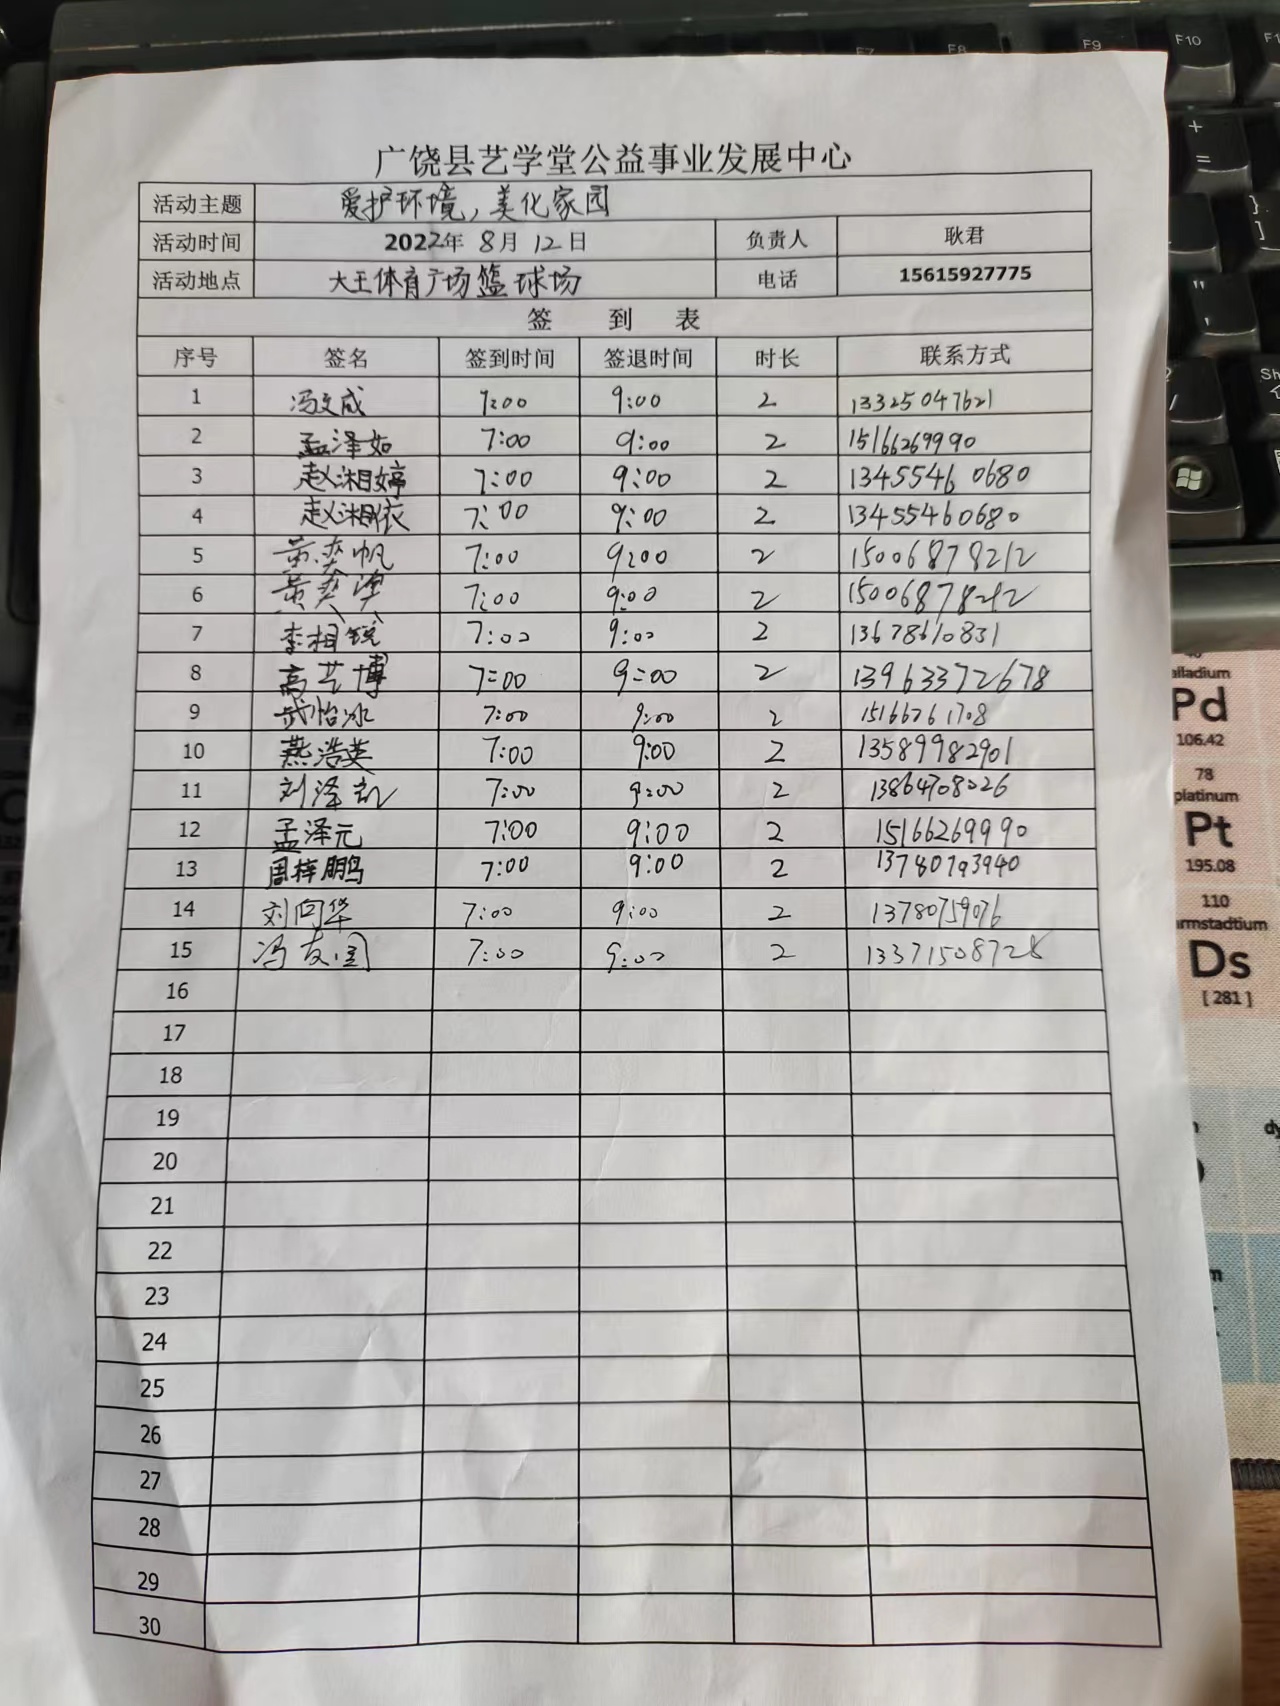 广饶县艺学堂公益事业发展中心
活动主题 爱护环境，美化家园
活动时间 2022年 8月 12日 负责人 耿君
活动地点 大王体育广场篮球场 电话 15615927775
签 到 表
序号 签名 签到时间 签退时间 时长 联系方式
1 冯文成 7:00 9:00 2 13325047621
2 孟泽如 7:00 9:00 2 15166269990
3 赵湘婷 7:00 9:00 2 13455460680
4 赵湘依 7:00 9:00 2 13455460680
5 黄奕帆 7:00 9:00 2 15006878212
6 7:00 9:00 2 15006878212
7 李相锐 7:00 9:00 2 13678610831
8 高艺博 7:00 9:00 2 13963372678
9 武怡冰 7:00 9:00 2 15166261708
10 燕浩英 7:00 9:00 2 13589982901
11 刘泽凯 7:00 9:00 2 13864708026
12 孟泽元 7:00 9:00 2 15166269990
13 周梓鹏 7:00 9:00 2 13780793940
14 刘向华 7:00 9:00 2 13780759076
15 冯友国 7:00 9:00 2 13371508728
16
17
18
19
20
21
22
23
24
25
26
27
28
29
30
F7 F8 F9 F10
Pd
106.42
78
platinum
Pt
195.08
110
Ds
[ 281 ]